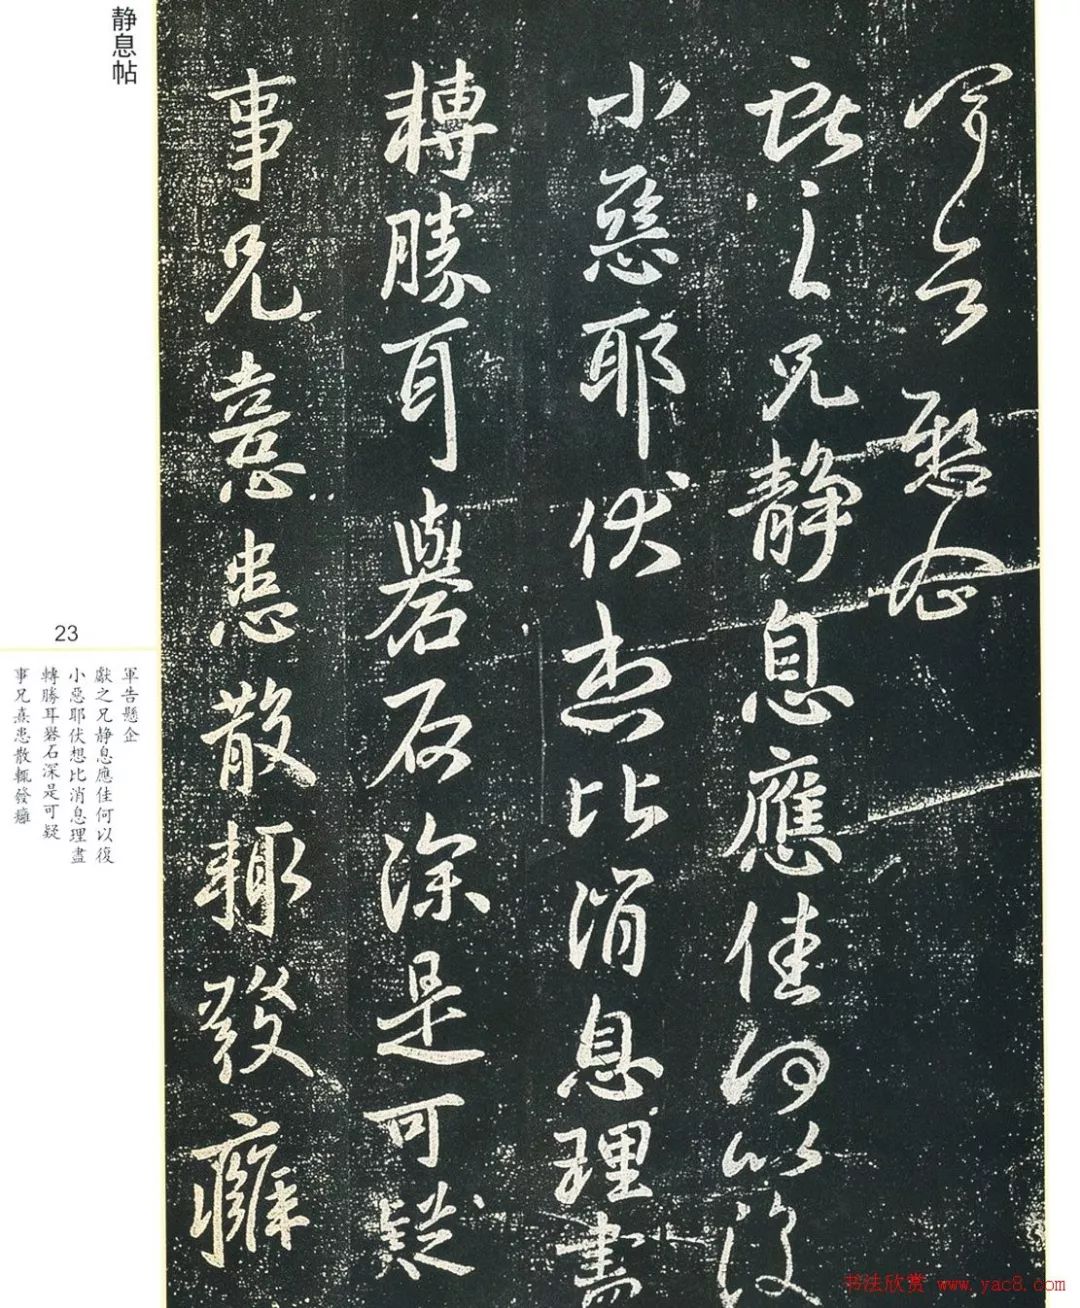 静息帖
軍告懸企
獻之兄静息應佳何以復
小惡耶伏想比消息理盡
轉勝耳礜石深是可疑
事兄憙患散輒發癰
23
軍告懸企
獻之兄静息應佳何以復
小惡耶伏想比消息理盡
轉勝耳礜石深是可疑
事兄憙患散輒發癰
书法欣赏 www.yac8.com